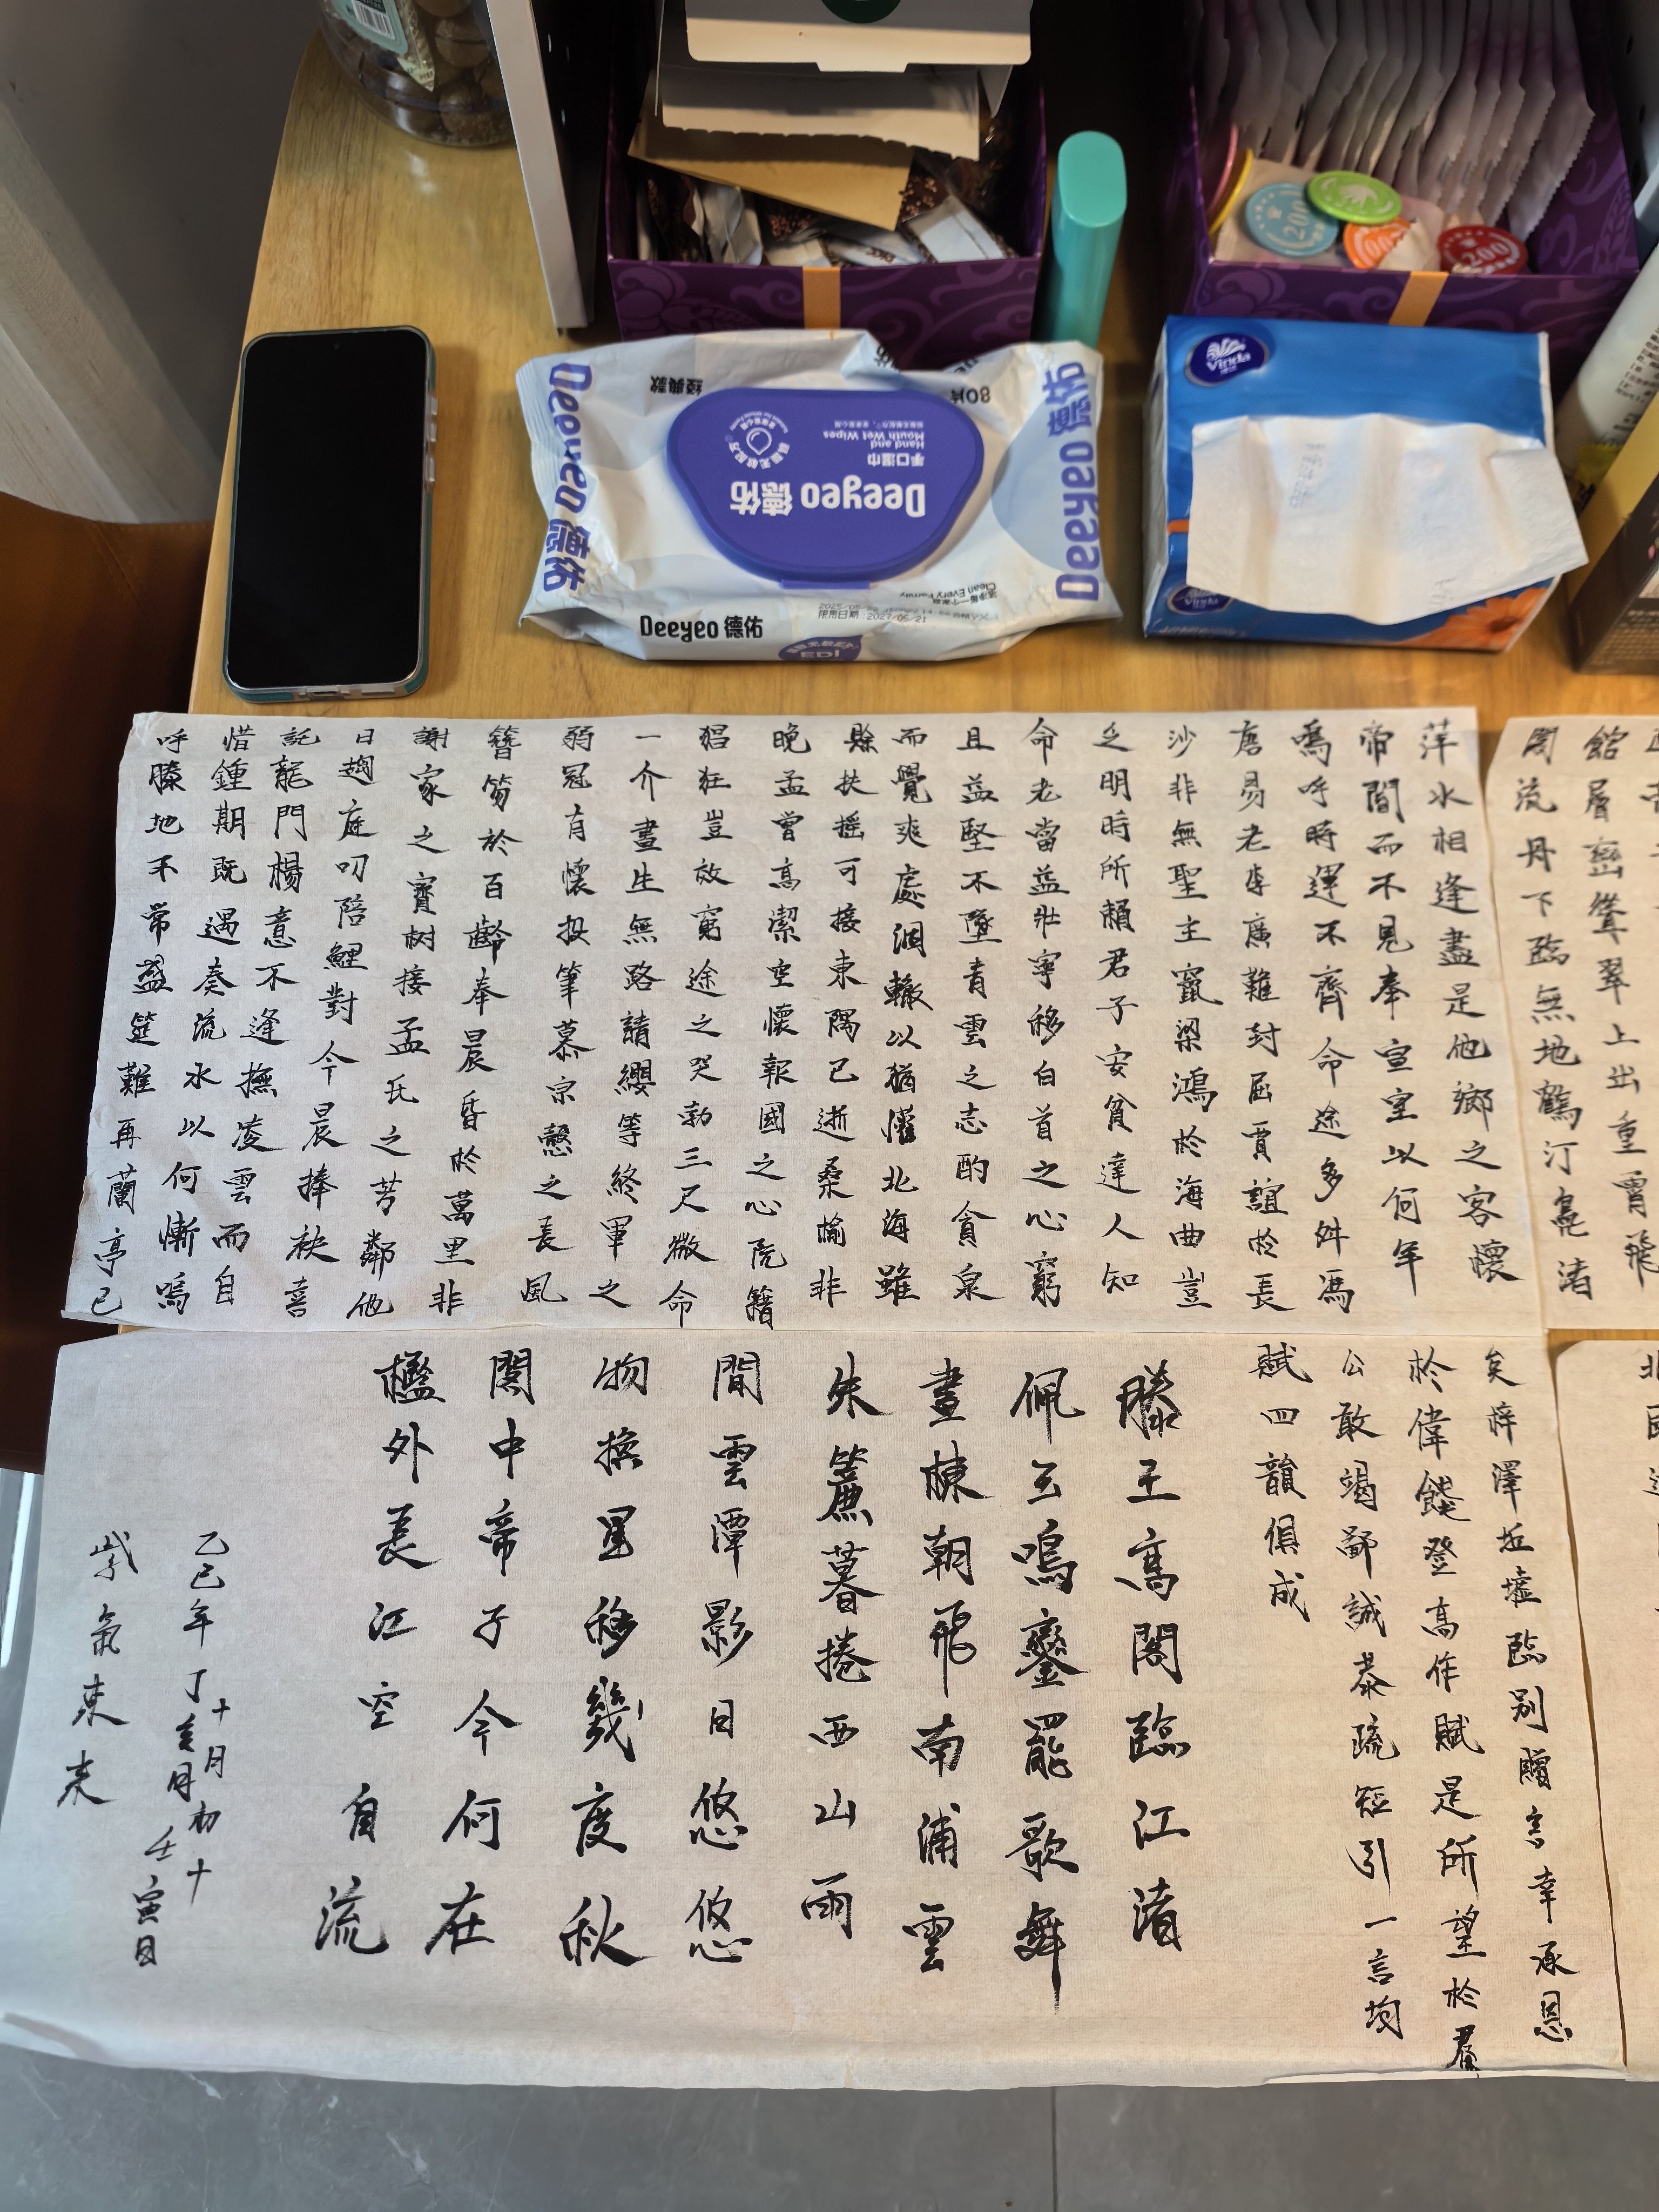 館層巒聳翠上出重霄飛
閣流丹下臨無地鶴汀鳧渚
萍水相逢盡是他鄉之客懷
帝閽而不見奉宣室以何年
嗚呼時運不齊命途多舛馮
唐易老李廣難封屈賈誼於長
沙非無聖主竄梁鴻於海曲豈
乏明時所賴君子安貧達人知
命老當益壯寧移白首之心窮
且益堅不墜青雲之志酌貪泉
而覺爽處涸轍以猶懽北海雖
賒扶摇可接東隅已逝桑榆非
晚孟嘗高潔空懷報國之心阮籍
猖狂豈效窮途之哭勃三尺微命
一介書生無路請纓等終軍之
弱冠有懷投筆慕宗慤之長風
簪笏於百齡奉晨昏於萬里非
謝家之寶树接孟氏之芳鄰他
日趨庭叨陪鯉對今晨捧袂喜
託龍門楊意不逢撫凌雲而自
惜鍾期既遇奏流水以何慚嗚
呼勝地不常盛筵難再蘭亭已
矣梓澤丘墟臨别贈言幸承恩
於偉餞登高作賦是所望於羣
公敢竭鄙誠恭疏短引一言均
賦四韻俱成
滕王高閣臨江渚
佩玉鳴鑾罷歌舞
畫棟朝飛南浦雲
朱簾暮捲西山雨
閒雲潭影日悠悠
物換星移幾度秋
閣中帝子今何在
檻外長江空自流
乙巳年十月初十
丁亥月壬寅日
紫氣東來
Deeyeo 德佑
手口湿巾
Hand and Mouth Wet Wipes
经典款
80片
Deeyeo 德佑
Deeyeo 德佑
Deeyeo 德佑
Clean Every Family
限用日期 2027/05/21
EDI
Vinda
Vinda
200
200